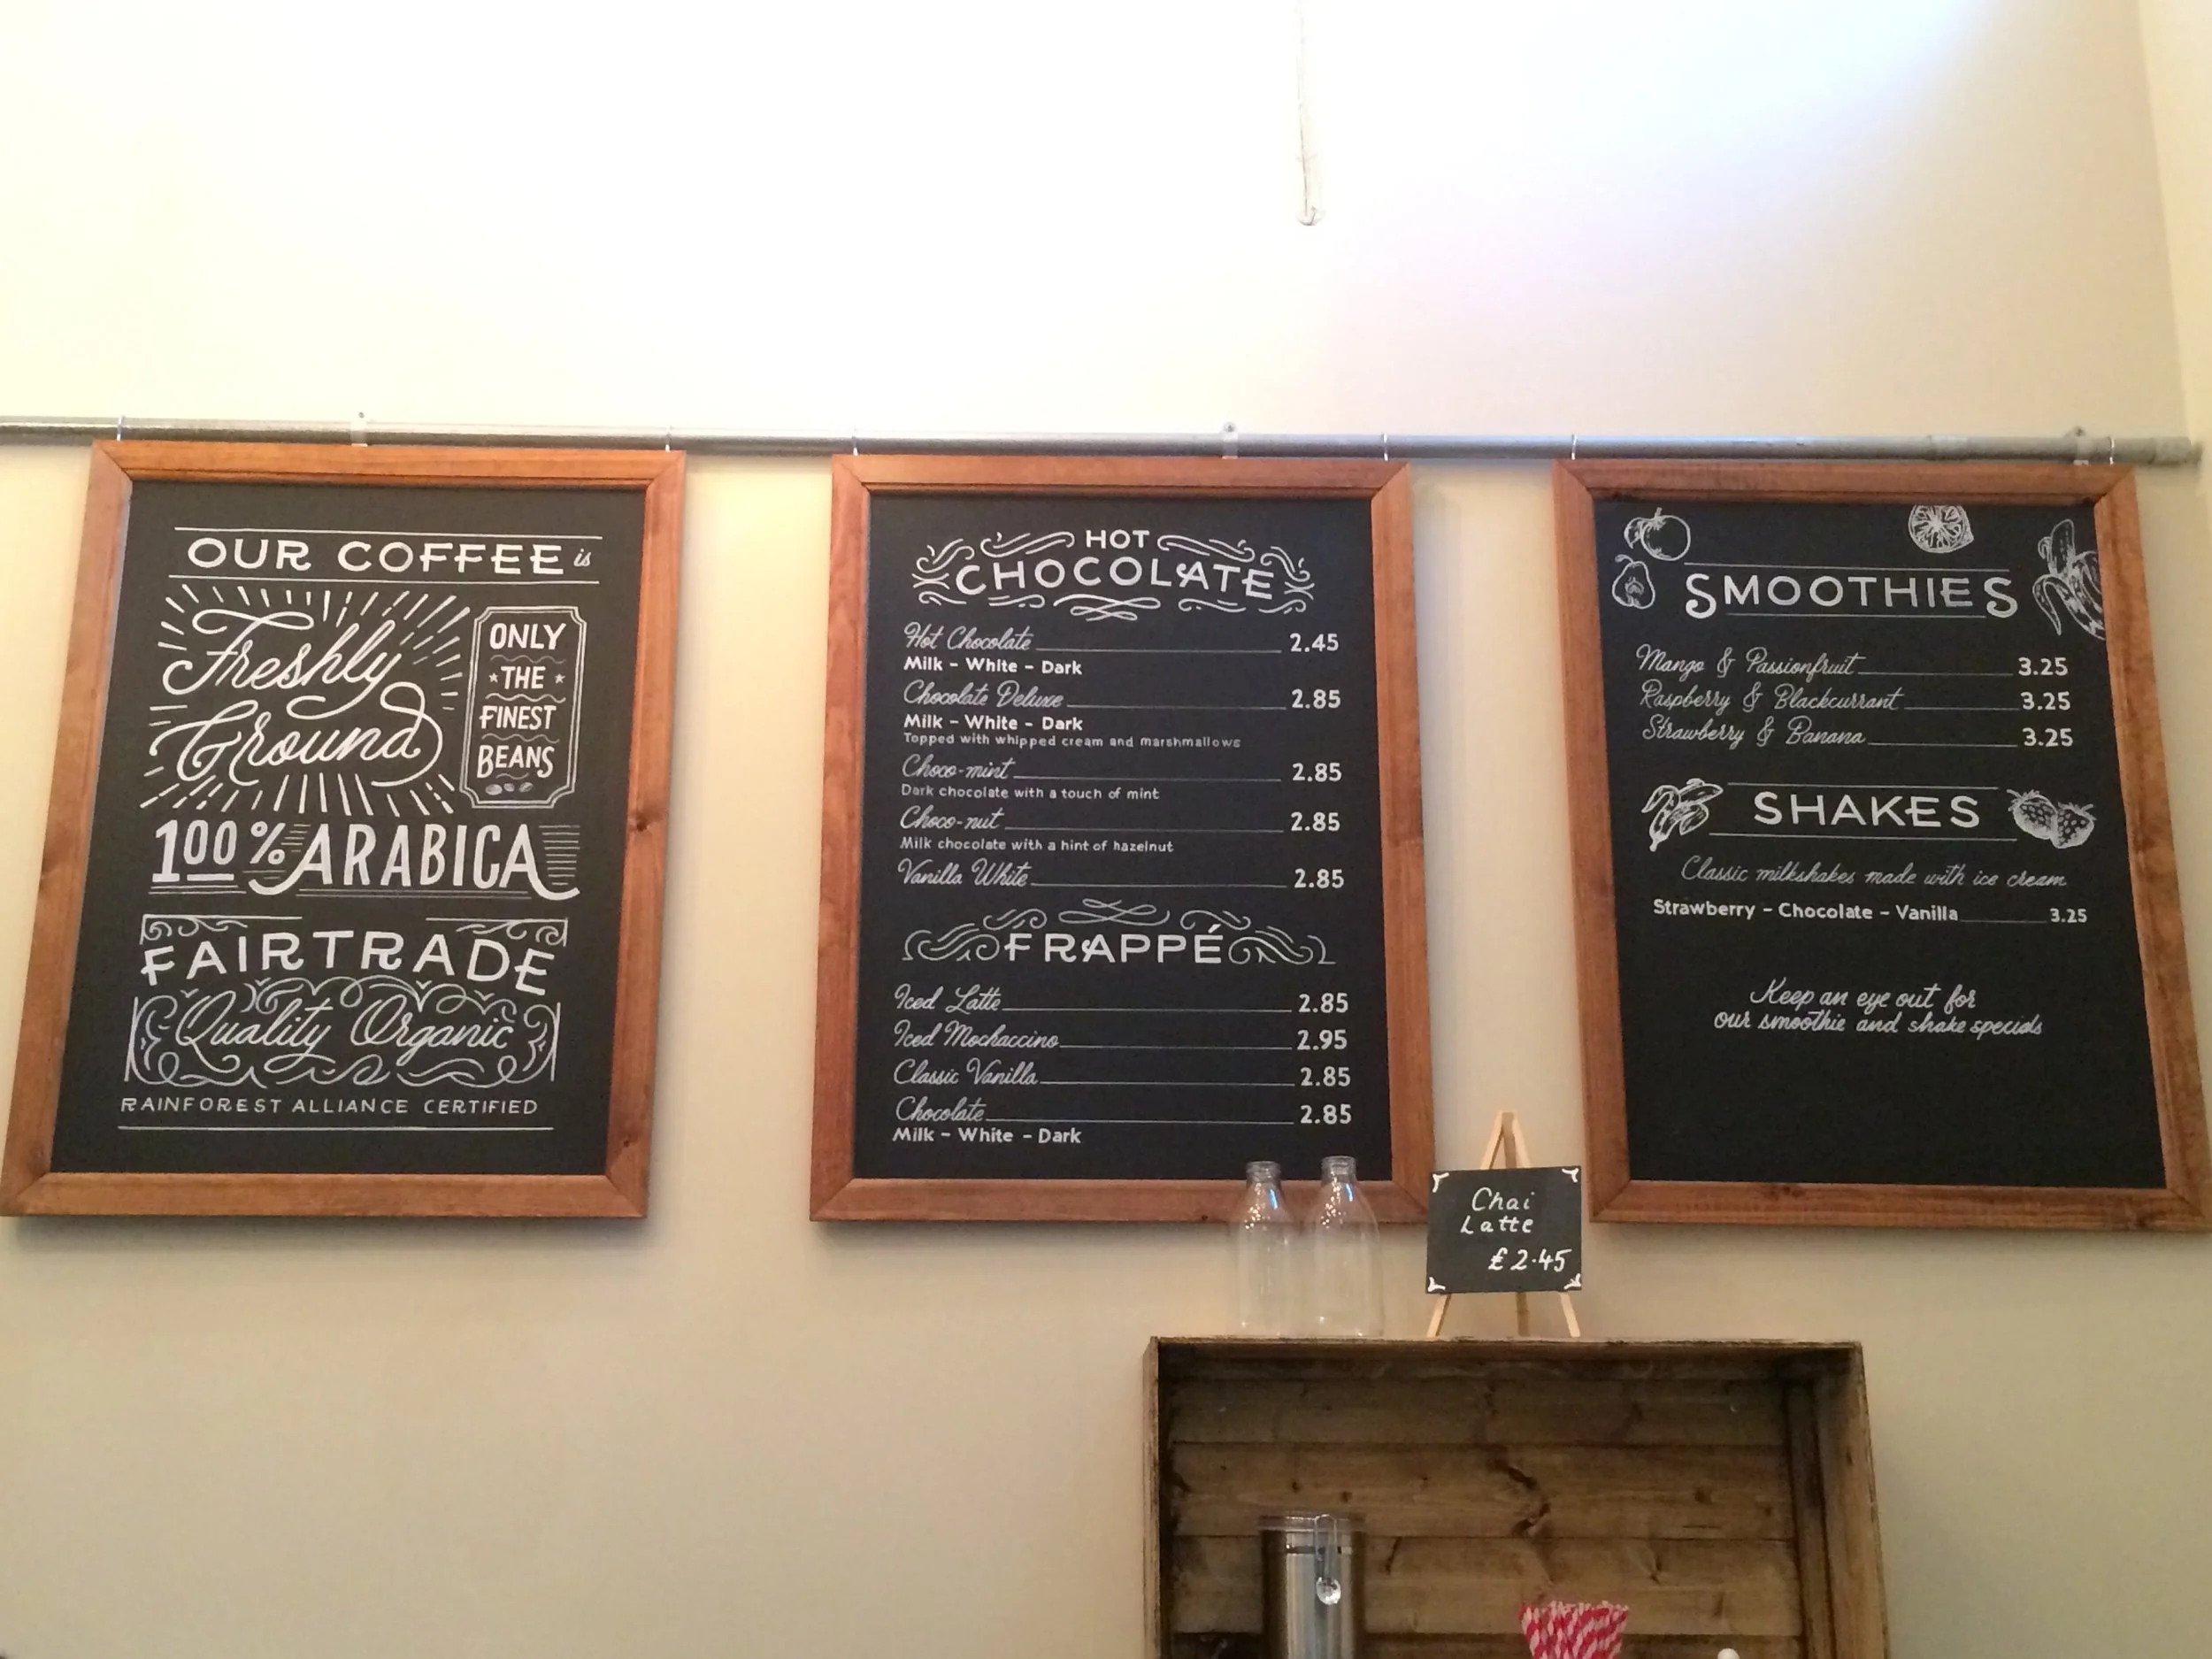 OUR COFFEE is
Freshly
Ground
ONLY
THE
FINEST
BEANS
100% ARABICA
FAIRTRADE
Quality Organic
RAINFOREST ALLIANCE CERTIFIED
HOT
CHOCOLATE
Hot Chocolate 2.45
Milk - White - Dark
Chocolate Deluxe 2.85
Milk - White - Dark
Topped with whipped cream and marshmallows
Choco-mint 2.85
Dark chocolate with a touch of mint
Choco-nut 2.85
Milk chocolate with a hint of hazelnut
Vanilla White 2.85
FRAPPÉ
Iced Latte 2.85
Iced Mochaccino 2.95
Classic Vanilla 2.85
Chocolate 2.85
Milk - White - Dark
SMOOTHIES
Mango & Passionfruit 3.25
Raspberry & Blackcurrant 3.25
Strawberry & Banana 3.25
SHAKES
Classic milkshakes made with ice cream
Strawberry - Chocolate - Vanilla 3.25
Keep an eye out for
our smoothie and shake specials
Chai
Latte
£2.45